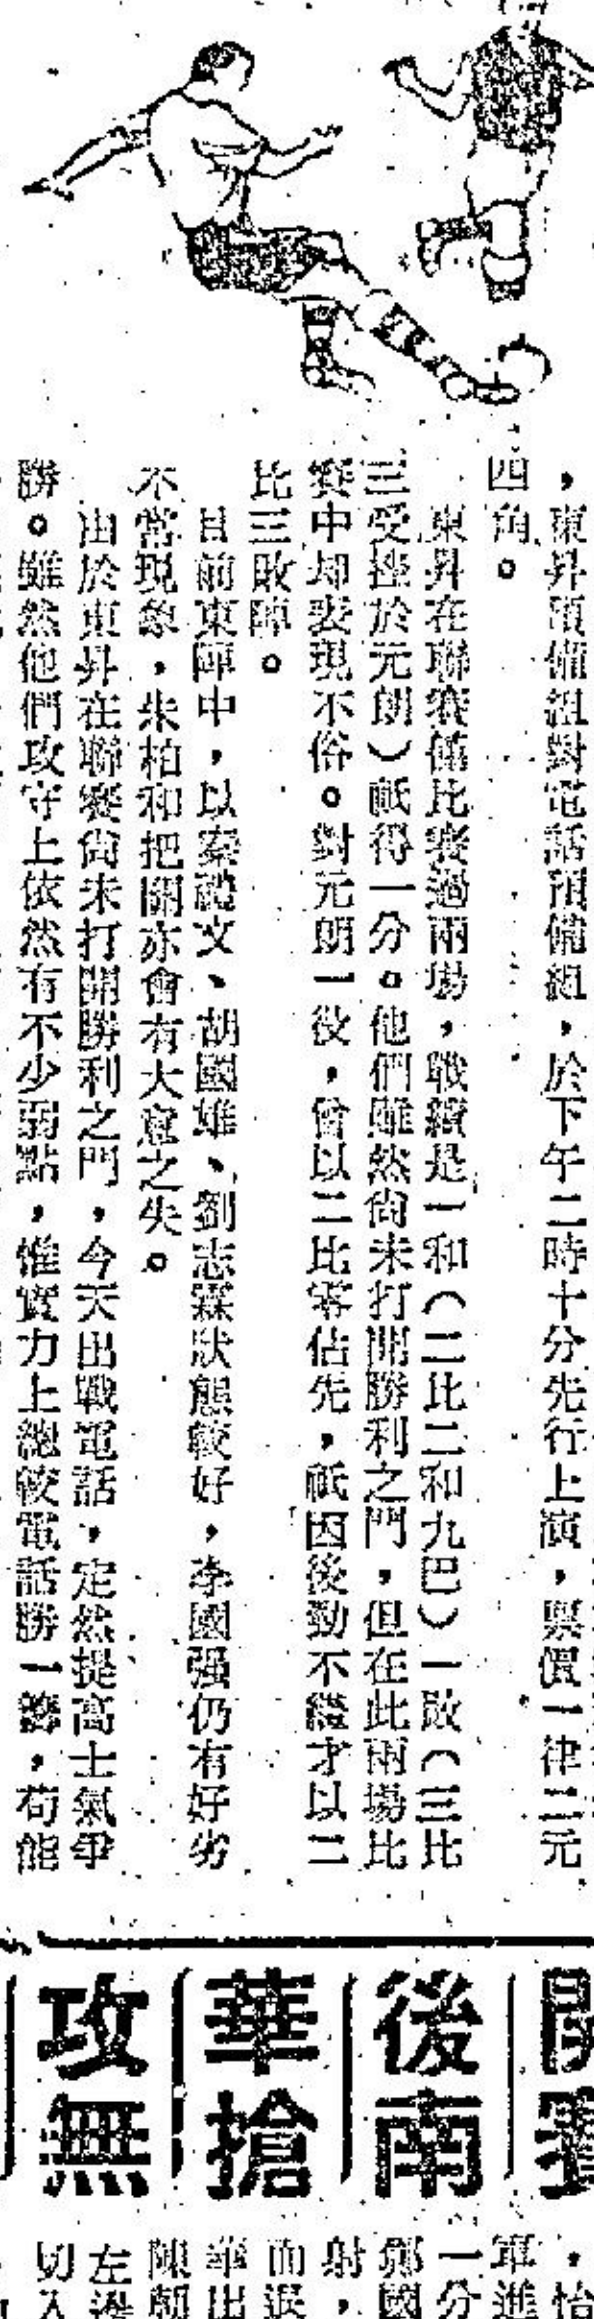 ，東昇預備組對電話預備組，於下午二時十分先行上演，票價一律二元
四角。
東昇在聯賽僅比賽過兩場，戰績是一和（二比二和九巴）一敗（三比
三受挫於元朗）祇得一分。他們雖然尚未打開勝利之門，但在此兩場比
賽中却表現不俗。對元朗一役，曾以二比零佔先，祇因後勁不繼才以二
比三敗陣。
目前東陣中，以秦文、胡國雄、劉志霖狀態較好，李國強仍有好劣
不常現象，朱柏和把關亦會有大意之失。
由於東昇在聯賽尚未打開勝利之門，今天出戰電話，定然提高士氣爭
勝。雖然他們攻守上依然有不少弱點，惟實力上總較電話勝一籌，苟能
開
後南
華搶
攻無
，怡
軍進
一分
鄧國
射，
而退
華出
陳朝
左邊
切入